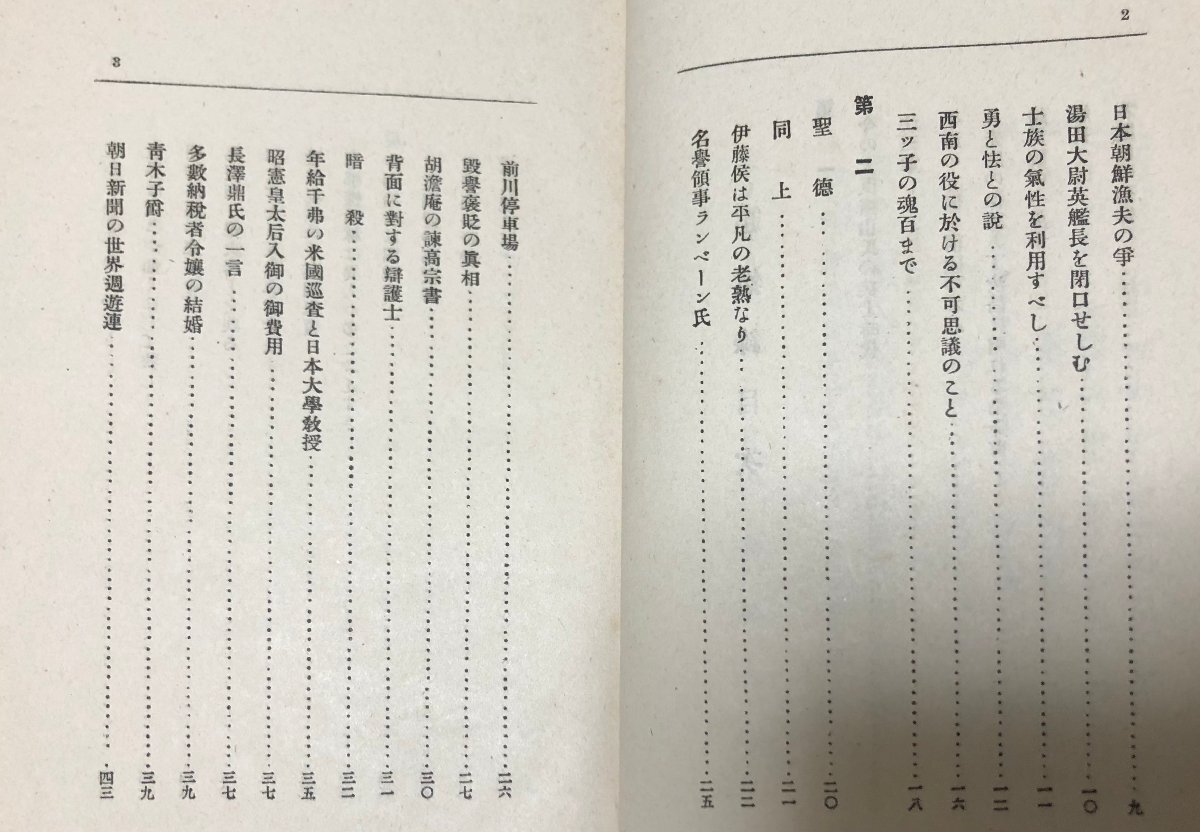 2
日本朝鮮漁夫の爭……九
湯田大尉英艦長を閉口せしむ……一〇
士族の氣性を利用すべし……一一
勇と怯との說……一二
西南の役に於ける不可思議のこと……一六
三ッ子の魂百まで……一八
第二
聖德……二〇
同上……二一
伊藤侯は平凡の老熟なり……二二
名譽領事ランベーン氏……二五
3
前川停車場……二六
毀譽褒貶の眞相……二七
胡澹庵の諫高宗書……三〇
背面に對する辯護士……三一
暗殺……三二
年給千弗の米國巡査と日本大學敎授……三五
昭憲皇太后入御の御費用……三七
長澤鼎氏の一言……三七
多數納稅者令孃の結婚……三九
靑木子爵……三九
朝日新聞の世界週遊連……四三